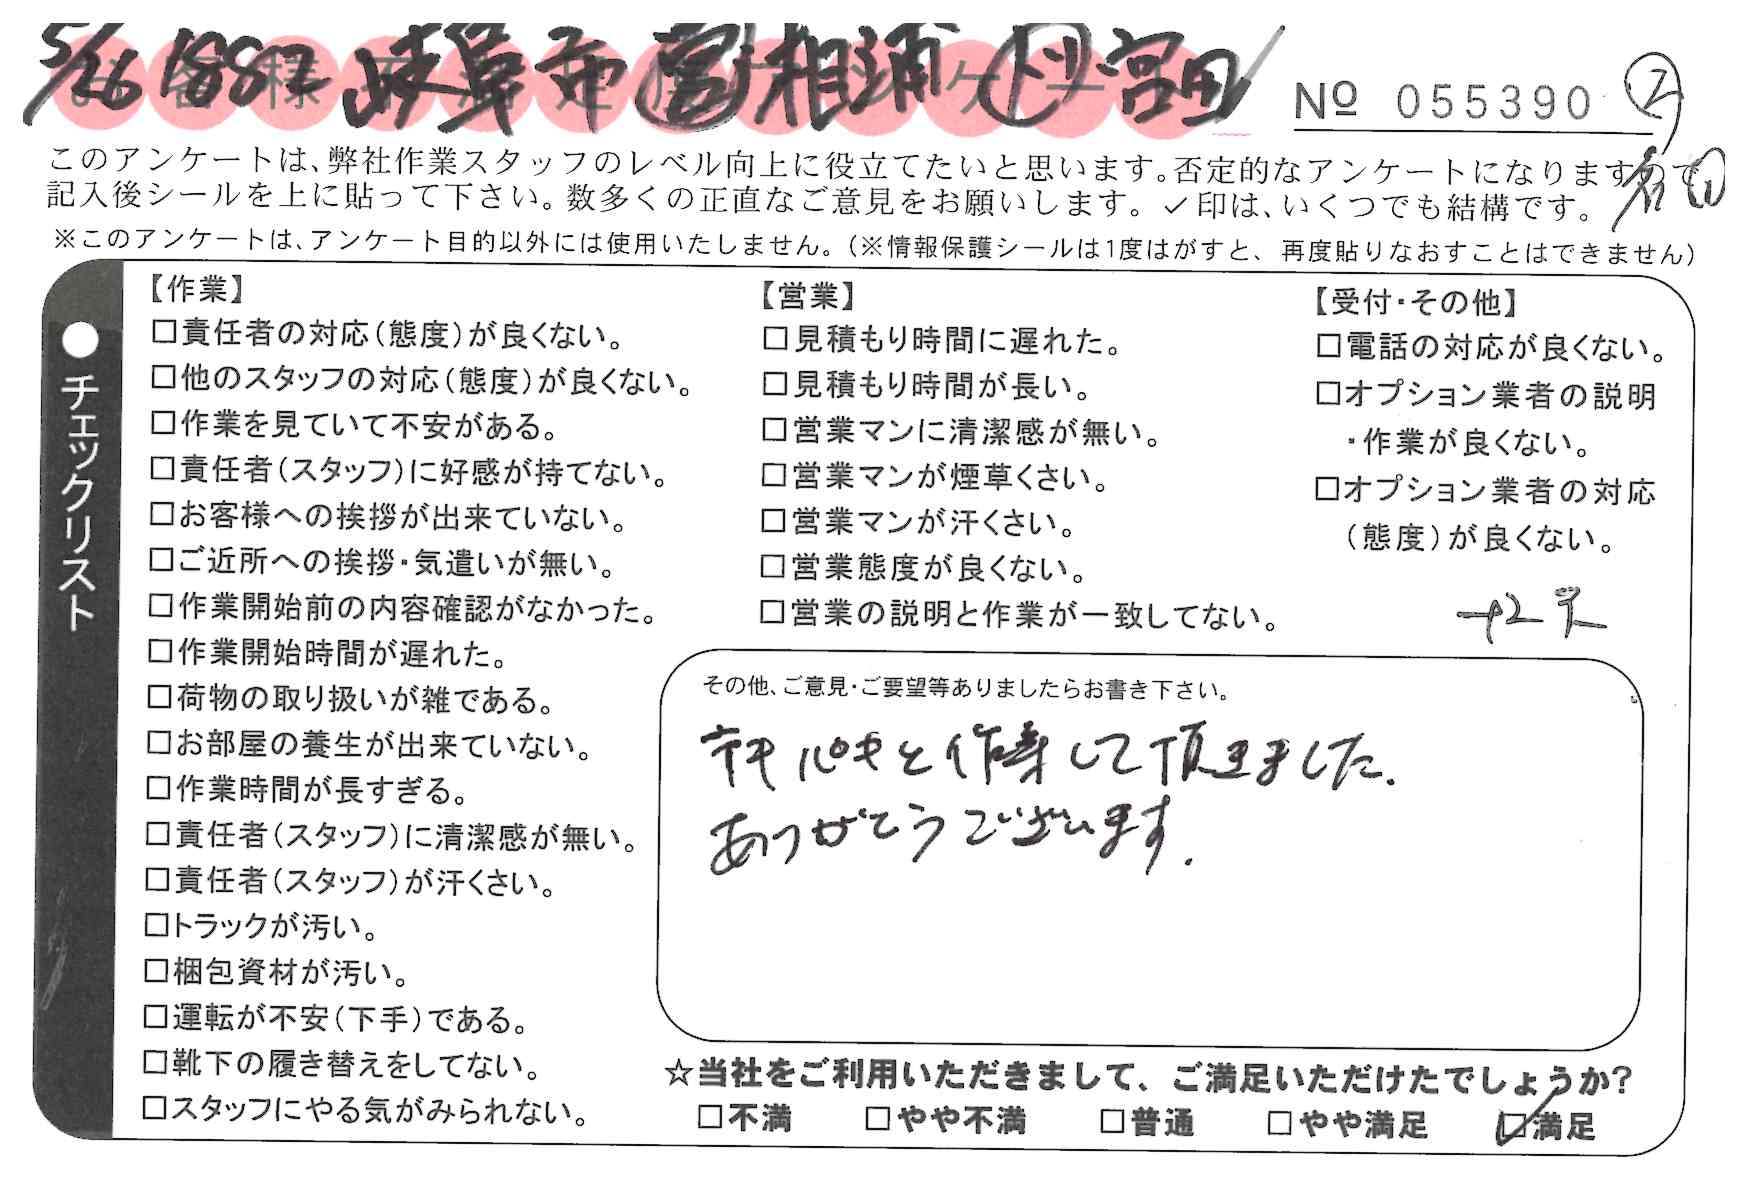 5/26 1882 岐阜市 営 相浦 トリ 宮田
お客様不満足度アンケート
№ 055390 ②
このアンケートは、弊社作業スタッフのレベル向上に役立てたいと思います。否定的なアンケートになりますので、
記入後シールを上に貼って下さい。数多くの正直なご意見をお願いします。✓印は、いくつでも結構です。
※このアンケートは、アンケート目的以外には使用いたしません。(※情報保護シールは1度はがすと、再度貼りなおすことはできません)
●チェックリスト
【作業】
□責任者の対応(態度)が良くない。
□他のスタッフの対応(態度)が良くない。
□作業を見ていて不安がある。
□責任者(スタッフ)に好感が持てない。
□お客様への挨拶が出来ていない。
□ご近所への挨拶・気遣いが無い。
□作業開始前の内容確認がなかった。
□作業開始時間が遅れた。
□荷物の取り扱いが雑である。
□お部屋の養生が出来ていない。
□作業時間が長すぎる。
□責任者(スタッフ)に清潔感が無い。
□責任者(スタッフ)が汗くさい。
□トラックが汚い。
□梱包資材が汚い。
□運転が不安(下手)である。
□靴下の履き替えをしてない。
□スタッフにやる気がみられない。
【営業】
□見積もり時間に遅れた。
□見積もり時間が長い。
□営業マンに清潔感が無い。
□営業マンが煙草くさい。
□営業マンが汗くさい。
□営業態度が良くない。
□営業の説明と作業が一致してない。
【受付・その他】
□電話の対応が良くない。
□オプション業者の説明
・作業が良くない。
□オプション業者の対応
(態度)が良くない。
その他、ご意見・ご要望等ありましたらお書き下さい。
テキパキと作業して頂きました.
ありがとうございます.
☆当社をご利用いただきまして、ご満足いただけたでしょうか?
□不満 □やや不満 □普通 □やや満足 ☑満足